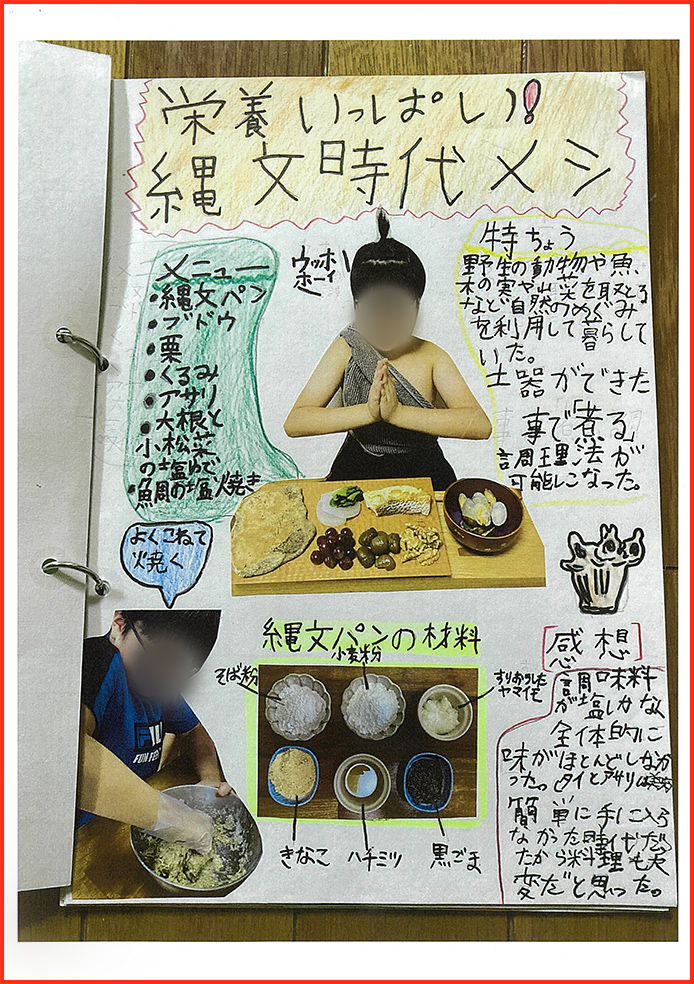 栄養いっぱい!
縄文時代メシ
メニュー
・縄文パン
・ブドウ
・栗
・くるみ
・アサリと
大根
小松菜
の塩ゆで
・魚周の塩火焼き
ウッホ
ウッホイ
ホーイ
特ちょう
野生の動物や魚、
木の実や山菜を取る
など自然のめぐみ
を利用して暮らして
いた。
土器ができた
事で「煮る」
調理法が
可能になった。
よくこねて
焼く
縄文パンの材料
小麦粉
そば粉
すりおろした
ヤマイモ
きなこ
ハチミツ
黒ごま
FILA
[感想]
調味料
が塩しかなく
全体的に
味がほとんどしなか
った。タイとアサリは
簡単に手に入ら
なかった時代だっ
たから料理も大
変だと思った。